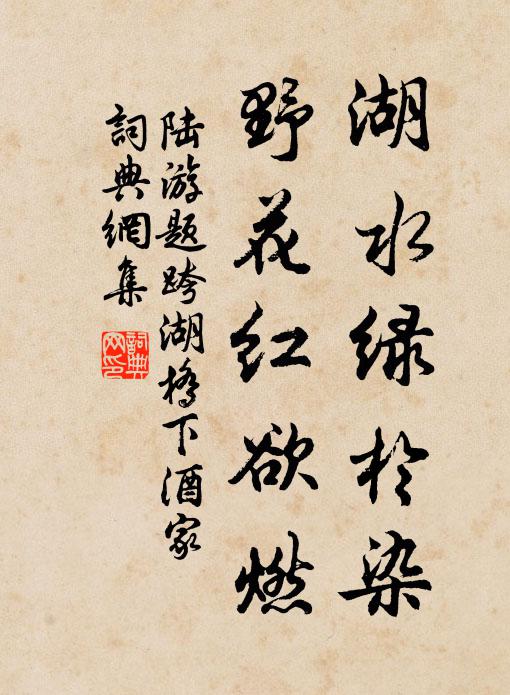 湖水绿於染
野花红欲燃
陆游题跨湖桥下酒家
词典網集
詞典网印